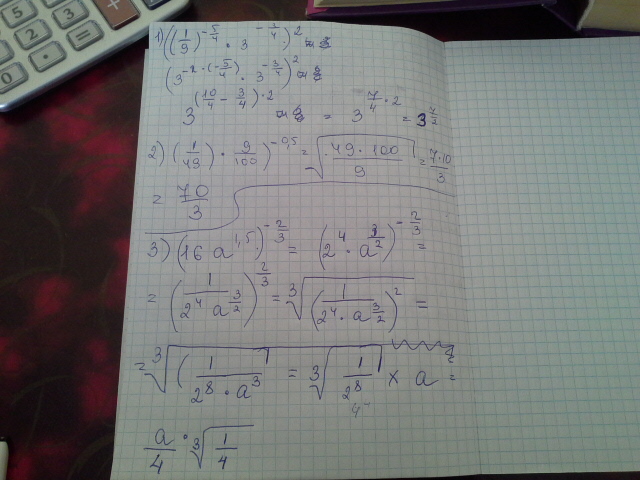 1) ((1/9)^(-5/4) · 3^(-3/4))^2
(3^(-2·(-5/4)) · 3^(-3/4))^2
3^((10/4 - 3/4)·2) = 3^(7/4·2) = 3^(7/2)
2) ((1/49) · 9/100)^(-0,5) = √(49·100/9) = 7·10/3
= 70/3
3) (16 a^(1,5))^(-2/3) = (2^4 · a^(3/2))^(-2/3) =
= (1/(2^4 a^(3/2)))^(2/3) = ∛((1/(2^4 · a^(3/2)))^2) =
= ∛(1/(2^8 · a^3)) = ∛(1/2^8) × a =
a/4 · ∛(1/4)